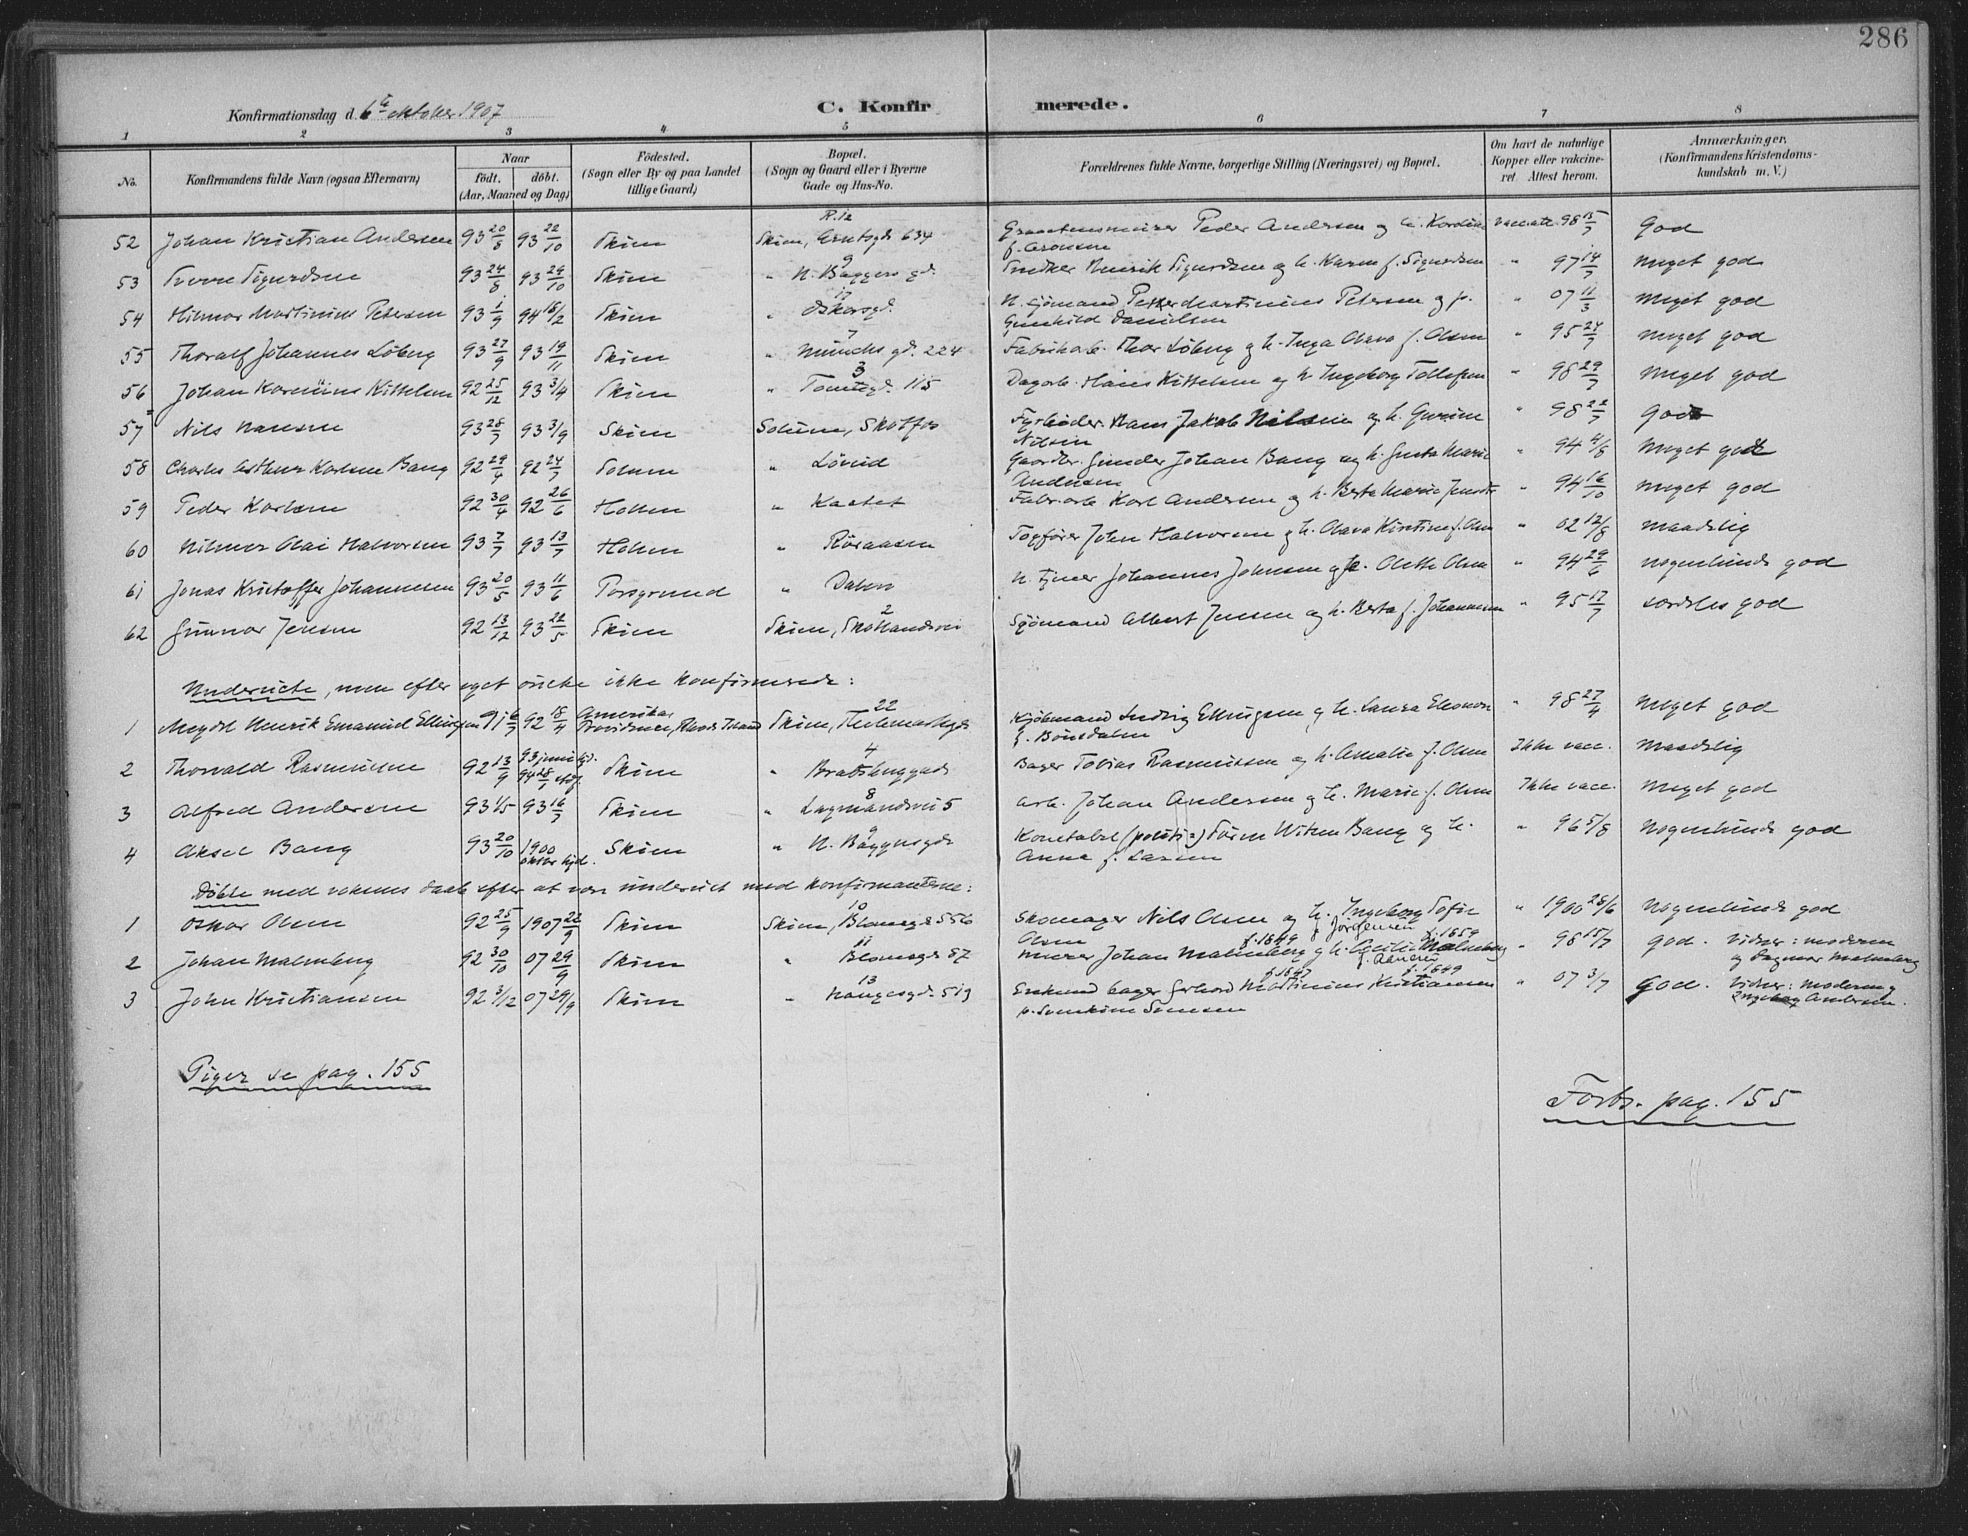 286
Konfirmationsdag d. 6te oktober 1907
C. Konfirmerede.
1 2 3 4 5 6 7 8
No.
Konfirmandens fulde Navn (ogsaa Efternavn)
Naar
födt. döbt.
(Aar, Maaned og Dag)
Födested.
(Sogn eller By og paa Landet
tillige Gaard)
Bopæl.
(Sogn og Gaard eller i Byerne
Gade og Hus-No.
Forældrenes fulde Navne, borgerlige Stilling (Næringsvei) og Bopæl.
Om havt de naturlige
Kopper eller vakcine-
ret Attest herom.
Anmærkninger.
(Konfirmandens Kristendoms-
kundskab m. V.)
R. 12
52 Johan Kristian Andersen 93 20/8 93 22/10 Skien Skien, 634 Peder Andersen og h. 98 15/7 God
f. Aronsen
9
53 Sverre Sigurdsen 93 24/8 93 29/10 Skien " N. Baggers gd. Snedker Henrik Sigurdsen og h. Karen f. Sigurdsen " 97 14/7 Meget god
17
54 Hilmar Martinius Petersen 93 1/9 94 18/2 Skien " Oskarsgd. N. Sjømand Petter Martinius Petersen og h. " 07 11/3 Meget god
Gunhild Danielsen
7
55 Thoralf Johannes Løberg 93 27/9 93 19/11 Skien " Munchs gd. 224 Fabrikarb. Thor Løberg og h. Inga Olava f. Olsen " 95 24/7 Meget god
3
56 Johan Karenius Kittelsen 92 25/12 93 3/4 Skien " Tomtegd. 115 Dagarb. Hans Kittelsen og h. Ingeborg Tollefsen " 98 29/7 Meget god
57 Nils Hansen 93 28/7 93 3/9 Skien Solum, Skotfos Fyrbøder Hans Jakob Nilsen og h. Gurine " 98 22/7 God
Nilsen
58 Charles Arthur Karlsen Bang 92 29/4 92 24/7 Solum " Løveid Gaardbr. Gunder Johan Bang og h. Gusta Marie " 94 4/8 Meget godt
Andersen
59 Peder Karlsen 92 30/4 92 26/6 Hollen " Kastet Fabr. arb. Karl Andersen og h. Berte Marie " 94 16/10 Meget god
60 Hilmar Olai Halvorsen 93 7/7 93 13/7 Hollen " Røraasen Togfører John Halvorsen og h. Olava Kirstine f. Olsen " 02 12/8 maadelig
61 Jonas Kristoffer Johannesen 93 20/5 93 11/6 Porsgrund " Dalen Johannes Johnsen og h. Olette Olsen " 94 29/6 Nogenlunde god
2
62 Gunnar Jensen 92 13/12 93 22/5 Skien Skien, Skotlandsvei Sjømand Albert Jensen og h. Berta f. Johannesen " 95 17/7 særdeles god
Underviste, men efter eget ønske ikke konfirmerede:
22
1 Magdl Henrik Emanuel Ellingsen 91 6/7 92 18/4 Amerika, Providence, Rhode Island Skien, Thelemarksgd. Kjøbmand Ludvig Ellingsen og h. Laura Eleonore " 98 27/4 Meget god
4
2 Thorvald Rasmussen 92 13/9 93 juni hjd. 94 28/1 stdf. Skien " Bratsberggade Bager Tobias Rasmussen og h. Amalie f. Olsen Ikke vacc. Maadelig
8
3 Alfred Andersen 93 1/5 93 16/7 Skien " Lagmandsvei 5 Arb. Johan Andersen og h. Marie f. Olsen Ikke vacc. Meget god
9
4 Aksel Bang 93 20/10 1900 oktbr hjd. Skien " N. Baggersgd. Konstabel (politi=) Søren Witzen Bang og h. " 96 5/8 Nogenlunde god
Anna f. Larsen
Døbte med voksnes daab efter at være undervist med konfirmanterne:
10
1 Oskar Olsen 92 25/9 1907 22/9 Skien Skien, Blomsgd. 556 Skomager Nils Olsen og h. Ingeborg Sofie " 1900 28/6 Nogenlunde god
Olsen f. Jörgensen
11 f. 1849 f. 1859
2 Johan Malmberg 92 30/10 07 29/9 Skien " Blomsgd. 87 Murer Johan Malmberg og h. Cecilie Malmberg " 98 15/7 God. Vidner: moderen
og Dagmar Malmberg
13 f. 1847 f. 1849
3 John Kristiansen 92 3/12 07 29/9 Skien " Haugesgd. 519 Enkemand bager Gerhard Martinius Kristiansen " 07 3/7 God. Vidner: moderen og
Ingeborg Andersen.
Piger se pag. 155
Forts. pag. 155